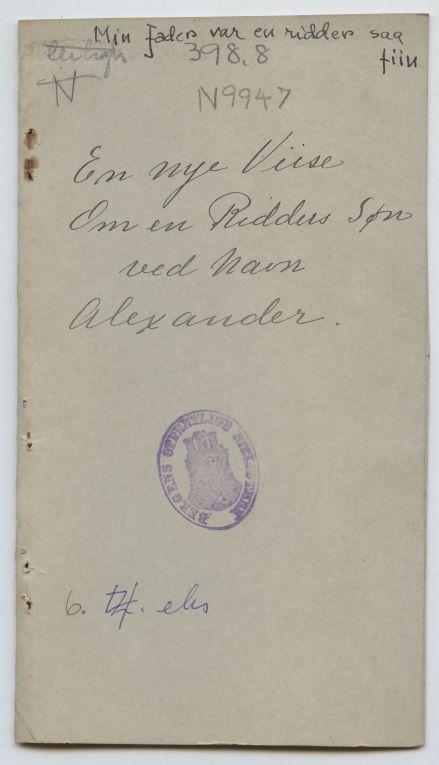 Min Faders var en ridders saa
fiin
398.8
N
N9947
En nye Viise
Om en Ridders Søn
ved Navn
Alexander.
BERGENS OFFENTLIGE BIBLIOTHEK
6. eks